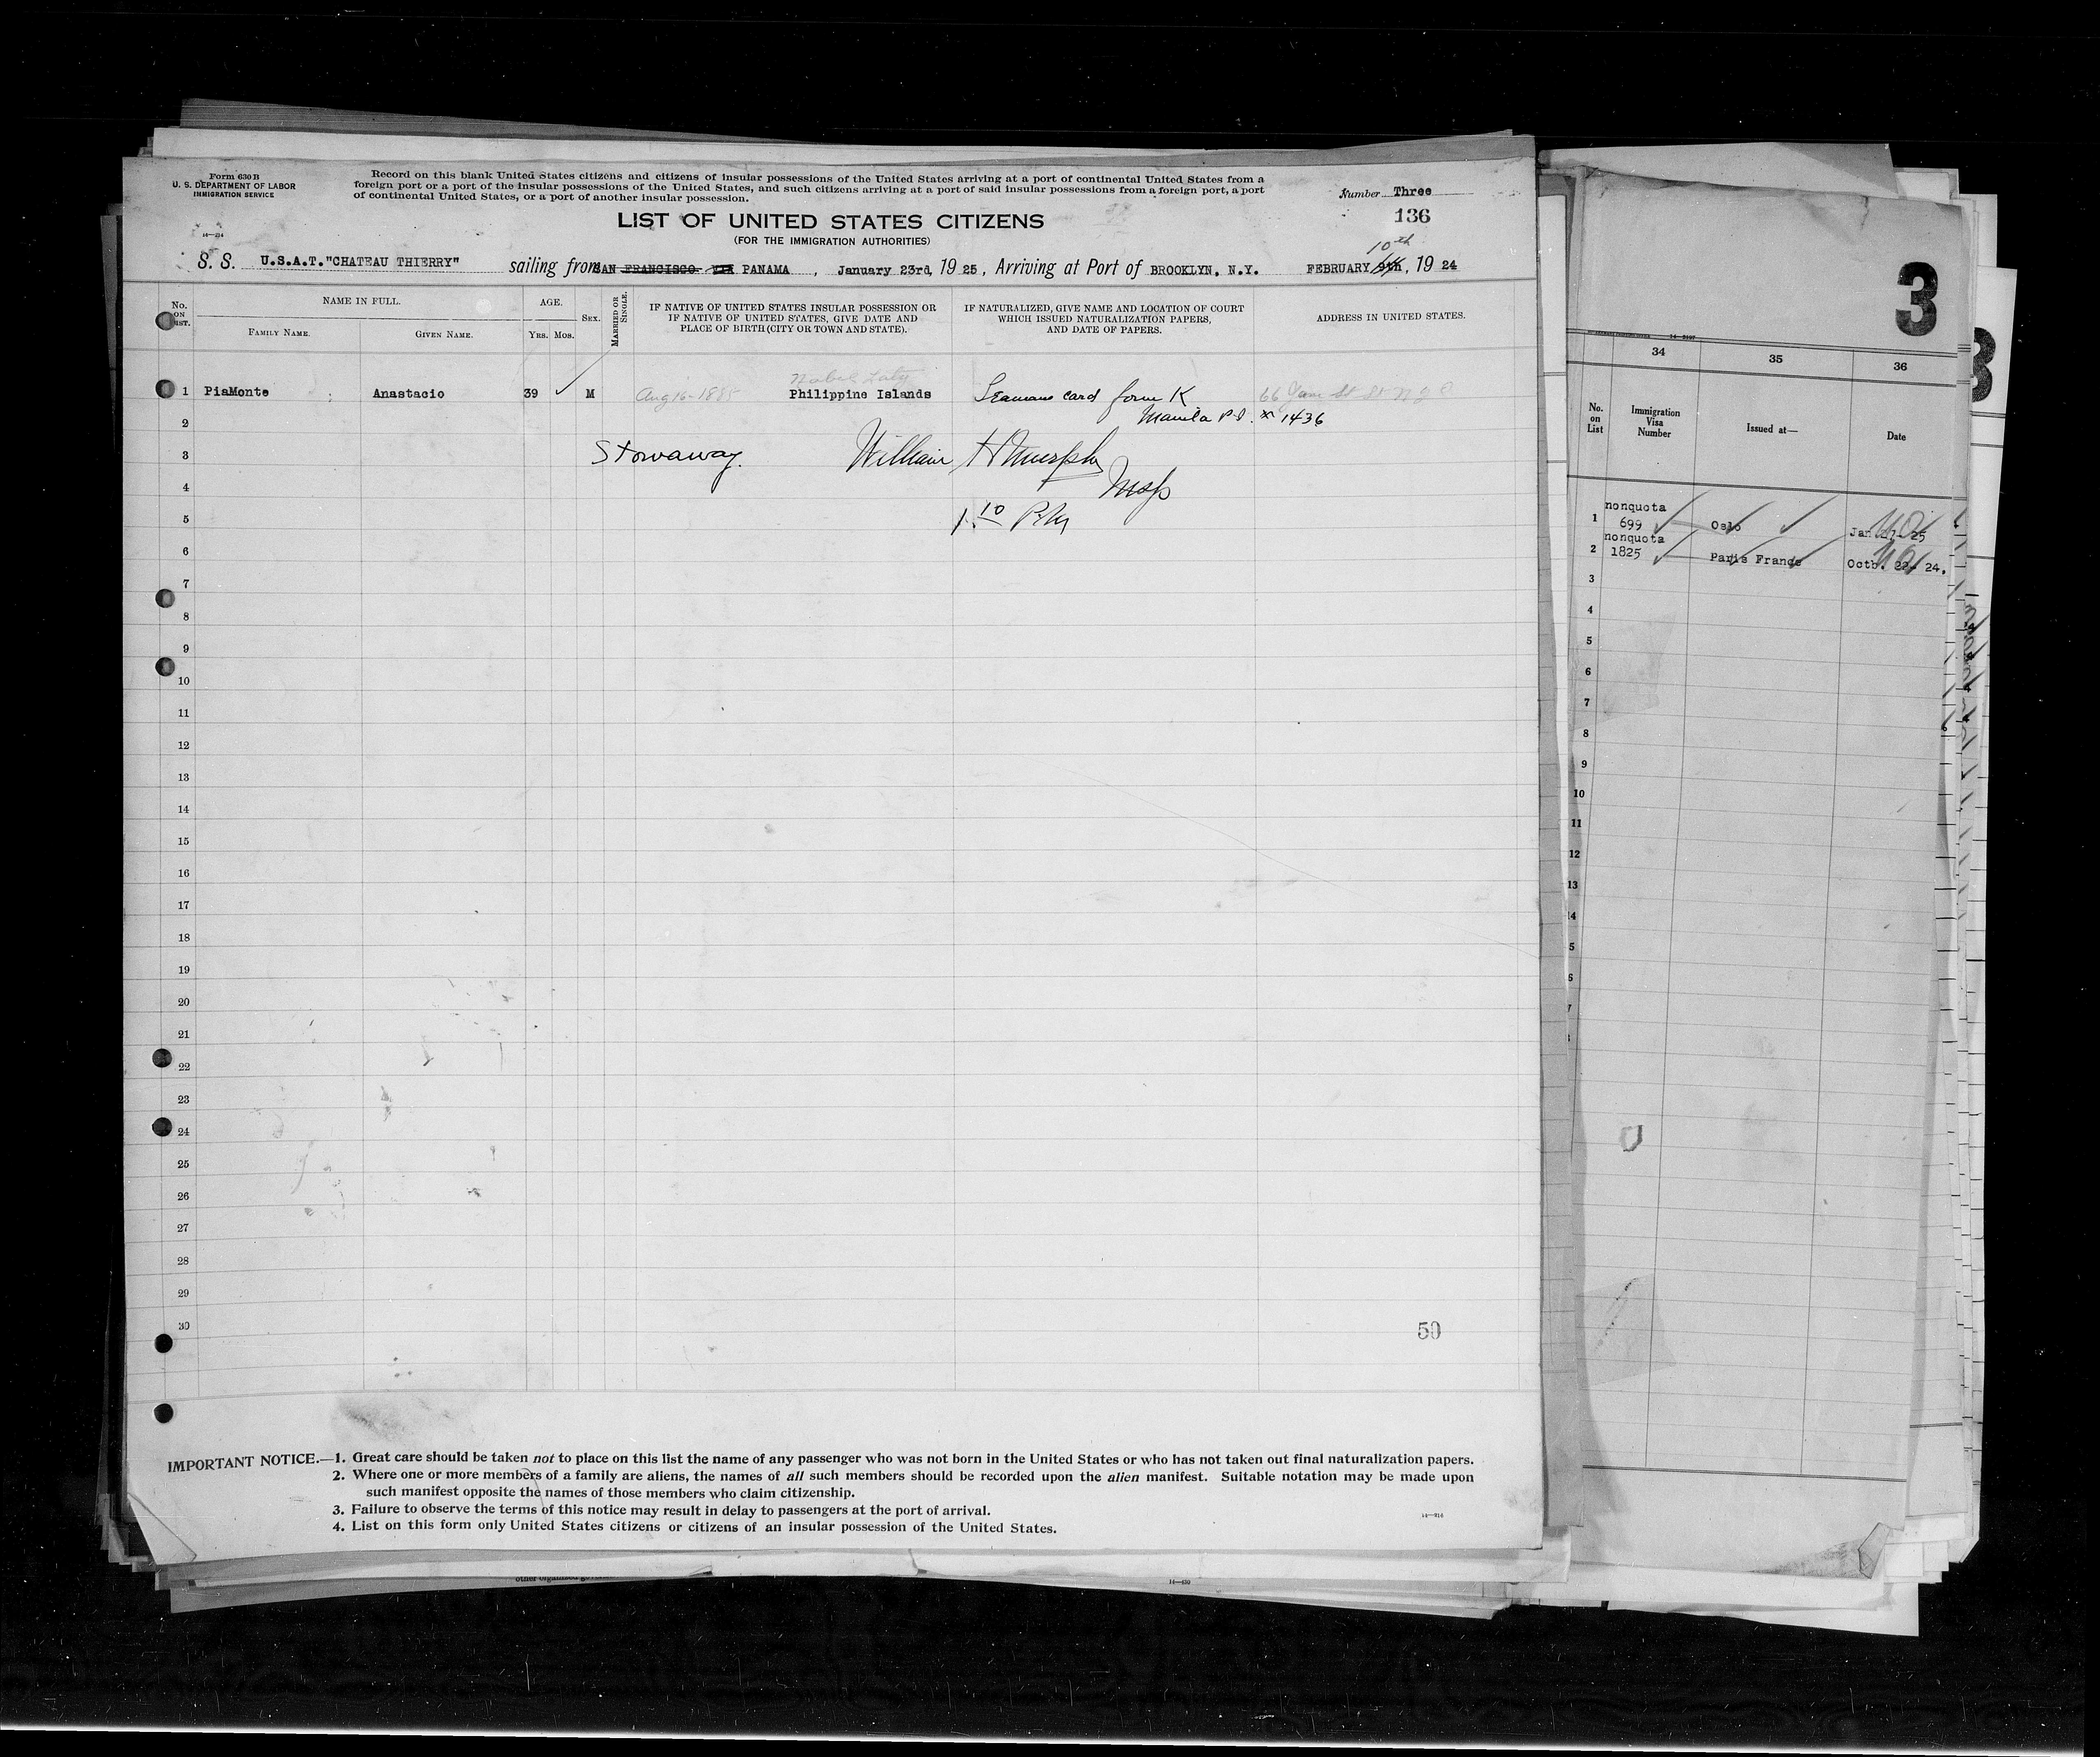 Form 630 B
U. S. DEPARTMENT OF LABOR
IMMIGRATION SERVICE
Record on this blank United States citizens and citizens of insular possessions of the United States arriving at a port of continental United States from a
foreign port or a port of the insular possessions of the United States, and such citizens arriving at a port of said insular possessions from a foreign port, a port
of continental United States, or a port of another insular possession.
Number Three
136
LIST OF UNITED STATES CITIZENS
(FOR THE IMMIGRATION AUTHORITIES)
10th
S. S. U.S.A.T."CHATEAU THIERRY" sailing from SAN FRANCISCO VIA PANAMA , January 23rd, 19 25, Arriving at Port of BROOKLYN, N.Y. FEBRUARY 9th, 19 24
No. ON LIST.
NAME IN FULL.
FAMILY NAME. GIVEN NAME.
AGE.
YRS. MOS.
SEX.
MARRIED OR SINGLE.
IF NATIVE OF UNITED STATES INSULAR POSSESSION OR
IF NATIVE OF UNITED STATES, GIVE DATE AND
PLACE OF BIRTH (CITY OR TOWN AND STATE).
IF NATURALIZED, GIVE NAME AND LOCATION OF COURT
WHICH ISSUED NATURALIZATION PAPERS,
AND DATE OF PAPERS.
ADDRESS IN UNITED STATES.
1 PiaMonte Anastacio 39 M Aug 16-1885 Philippine Islands Seamans card form K 66
Manila P.I. 1436
2
3 Stowaway. William H Murphy
4 Insp
5 1.10 P.M
6
7
8
9
10
11
12
13
14
15
16
17
18
19
20
21
22
23
24
25
26
27
28
29
30
50
IMPORTANT NOTICE.—1. Great care should be taken not to place on this list the name of any passenger who was not born in the United States or who has not taken out final naturalization papers.
2. Where one or more members of a family are aliens, the names of all such members should be recorded upon the alien manifest. Suitable notation may be made upon
such manifest opposite the names of those members who claim citizenship.
3. Failure to observe the terms of this notice may result in delay to passengers at the port of arrival.
4. List on this form only United States citizens or citizens of an insular possession of the United States.
3
34 35 36
No. on List
Immigration Visa Number
Issued at—
Date
nonquota
1 699 Oslo Jan. 25
nonquota
2 1825 Paris France Octb. 24.
3
4
5
6
7
8
9
10
11
12
13